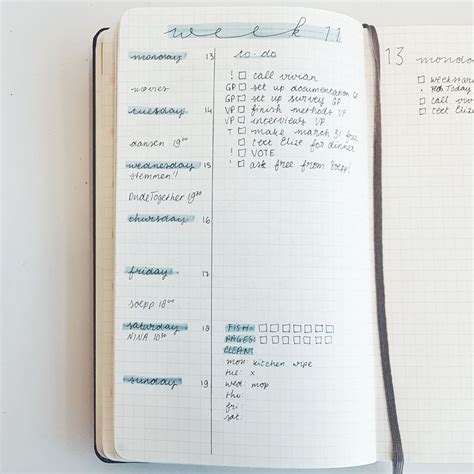 week 11
monday 13
movies
tuesday 14
dansen 19⁰⁰
wednesday 15
stemmen!!
OudeTogether 19³⁰
thursday 16
friday 17
soepp 18⁰⁰
saturday 18
NINA 10³⁰
sunday 19
to-do
! call vivian
GP set up documentation GP
GP set up survey GP
VP finish methods VP
VP interviews VP
T make march 31 free
text Elize for dinner
! VOTE
! ask free from Soepp!
FISH:
PAGES:
CLEAN:
mon: kitchen wipe
tue: x
wed: mop
thu:
fri:
sat:
13 monda
weekstart
Today
call vivian
text Elize